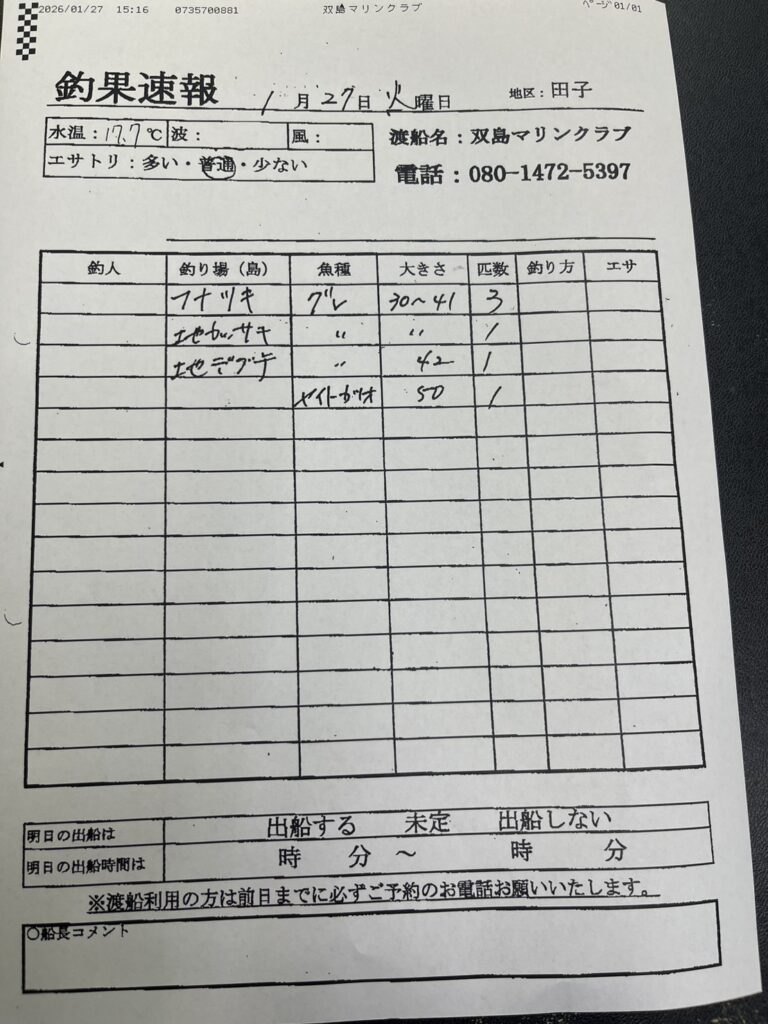 2026/01/27 15:16 0735700881 双島マリンクラブ ページ 01/01
釣果速報 1月27日 火曜日 地区:田子
水温:17.7℃ 波: 風:
エサトリ:多い・普通・少ない
渡船名:双島マリンクラブ
電話:080-1472-5397
釣人 釣り場(島) 魚種 大きさ 匹数 釣り方 エサ
フナツキ グレ 30~41 3
地カツサキ 〃 〃 1
地デブキ 〃 42 1
ヤイトガツオ 50 1
明日の出船は 出船する 未定 出船しない
明日の出船時間は 時 分 ~ 時 分
※渡船利用の方は前日までに必ずご予約のお電話お願いいたします。
○船長コメント